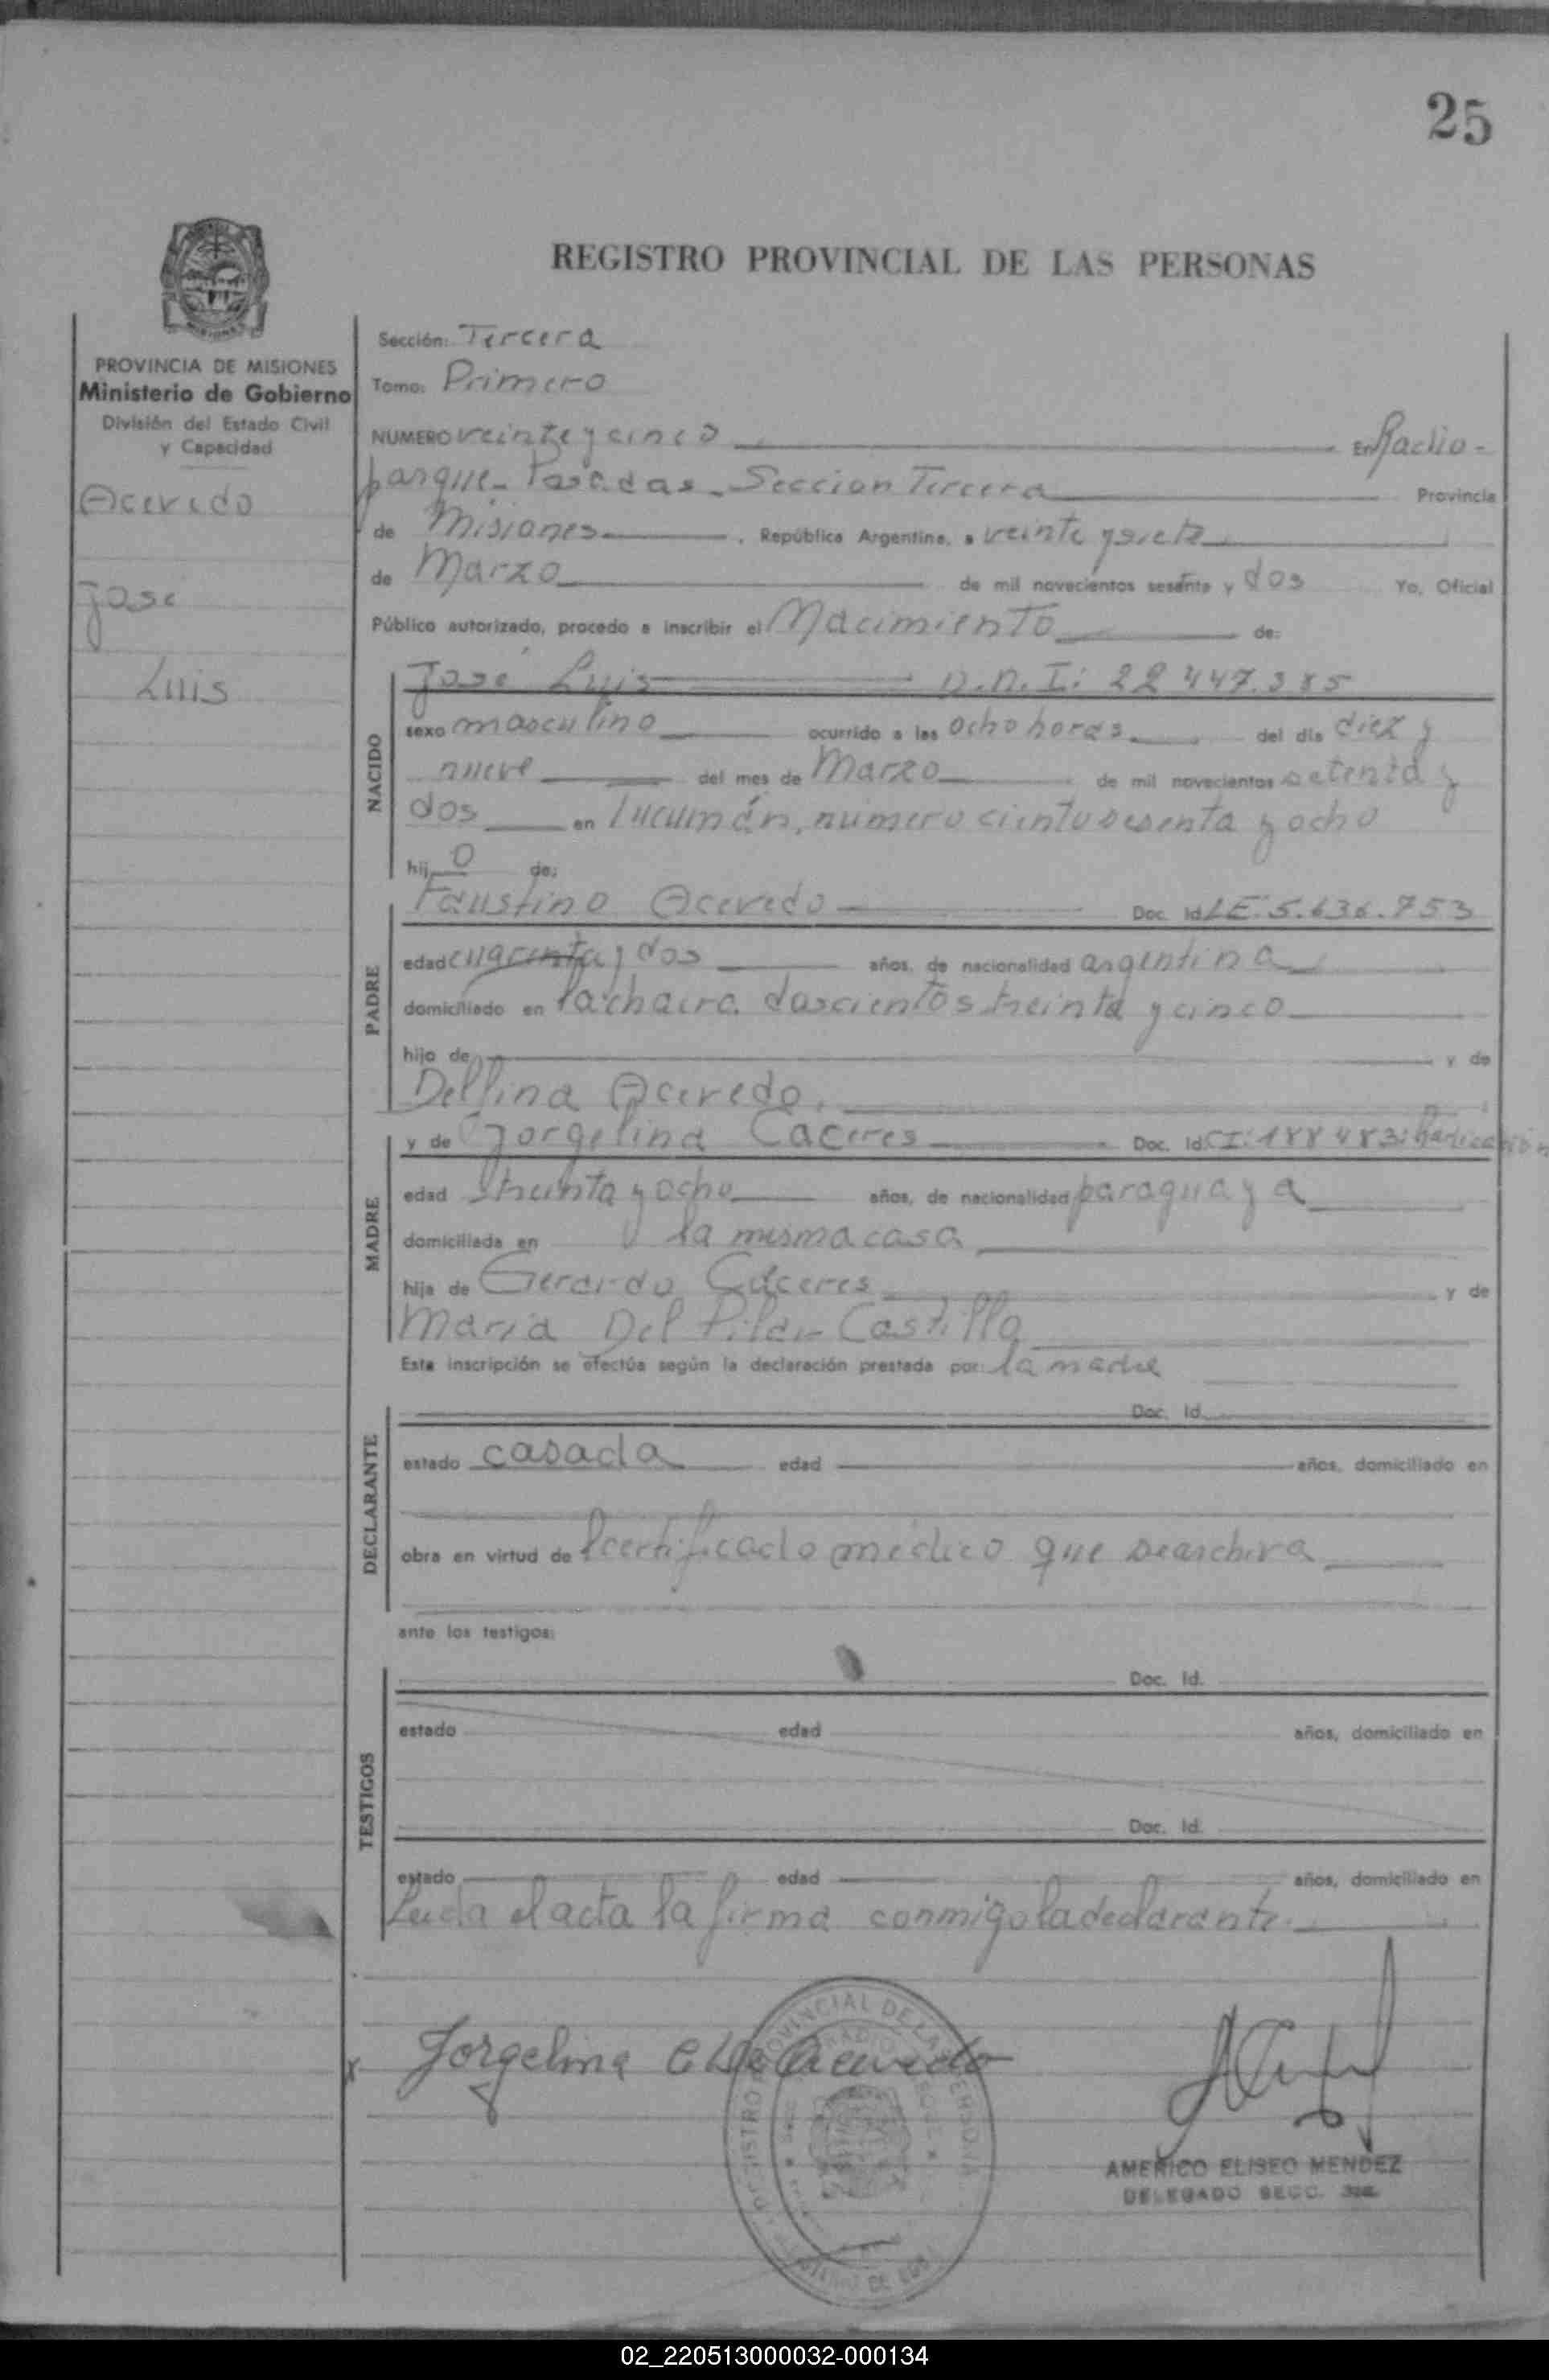 25
REGISTRO PROVINCIAL DE LAS PERSONAS
PROVINCIA DE MISIONES
Ministerio de Gobierno
División del Estado Civil
y Capacidad
Acevedo
José
Luis
Sección: Tercera
Tomo: Primero
NUMERO veinte y cinco En Radio-
parque- Posadas- Seccion Tercera Provincia
de Misiones, República Argentina, a veinte y siete
de Marzo de mil novecientos sesenta y dos Yo, Oficial
Público autorizado, procedo a inscribir el Nacimiento de:
José Luis D.N.I: 22 447.385
NACIDO
sexo masculino ocurrido a las ocho horas del día diez y
nueve del mes de Marzo de mil novecientos setenta y
dos en Tucumán, número ciento sesenta y ocho
hijo de:
Faustino Acevedo Doc. Id. LE. 5.636.753
PADRE
edad cuarenta y dos años, de nacionalidad argentina
domiciliado en doscientos treinta y cinco
hijo de y de
Delfina Acevedo.
y de Jorgelina Caceres Doc. Id. CI: 188483:
MADRE
edad treinta y ocho años, de nacionalidad paraguaya
domiciliada en la misma casa
hija de Gerardo Cáceres y de
María Del Pilar Castillo
Esta inscripción se efectúa según la declaración prestada por: la madre
Doc. Id.
DECLARANTE
estado casada edad años, domiciliado en
obra en virtud de l certificado médico que se archiva
ante los testigos:
Doc. Id.
TESTIGOS
estado edad años, domiciliado en
Doc. Id.
estado edad años, domiciliado en
Leida el acta la firma conmigo la declarante.
x Jorgelina C de Acevedo
AMERICO ELISEO MENDEZ
DELEGADO SECC. 3ra.
02_220513000032-000134